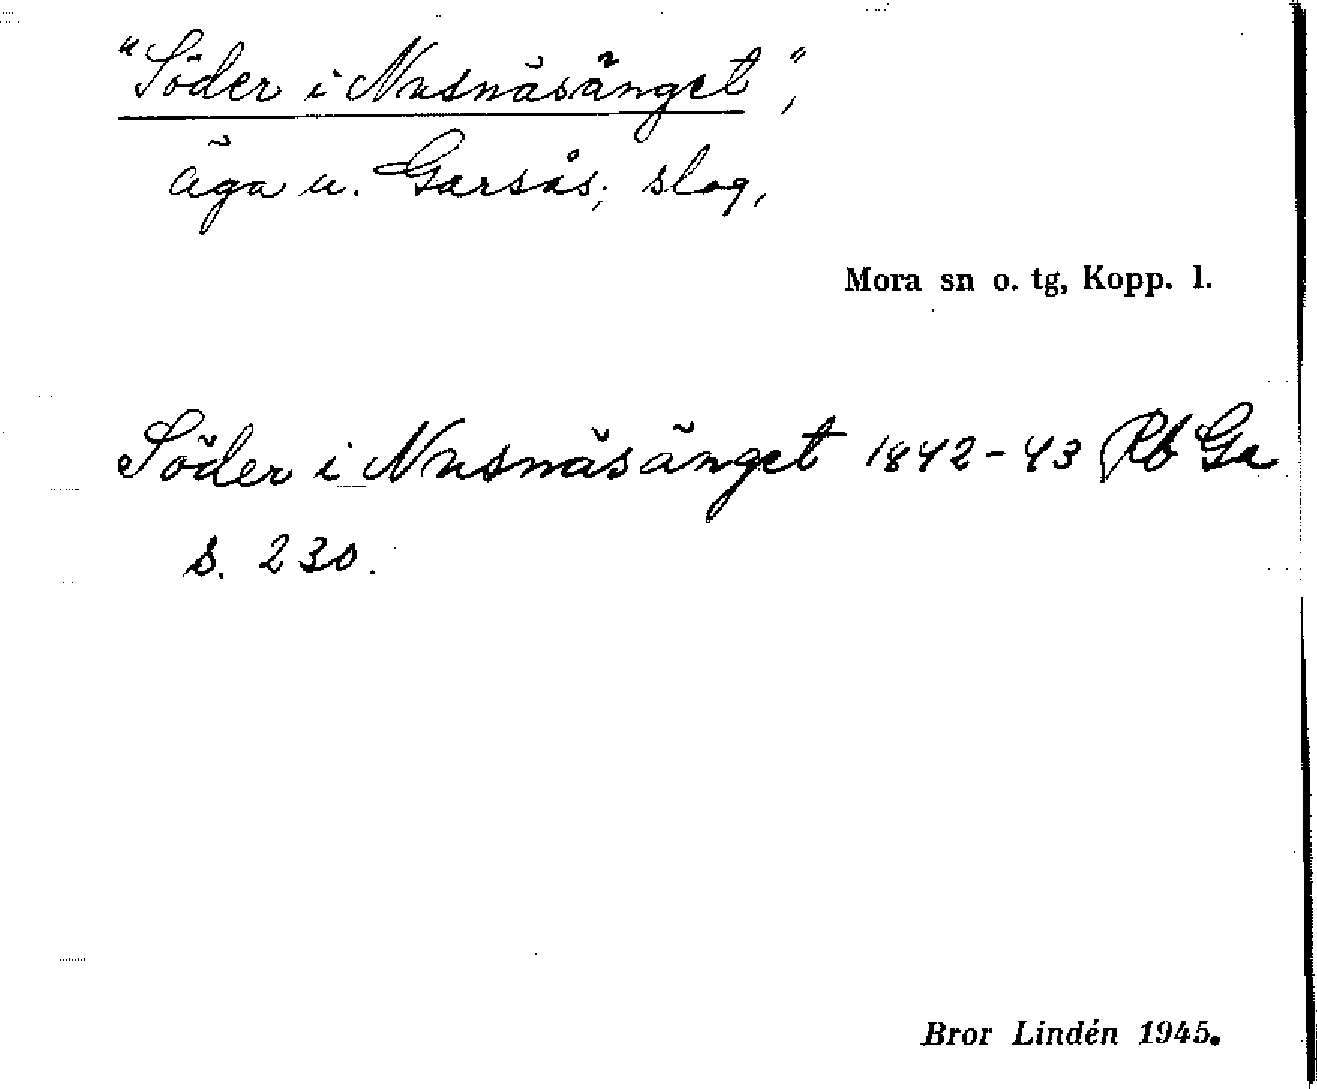 "Söder i Nusnäsänget",
äga u. Garsås; slog,
Mora sn o. tg, Kopp. l.
Söder i Nusnäsänget 1842-43 Rb Ga
s. 230.
Bror Lindén 1945.